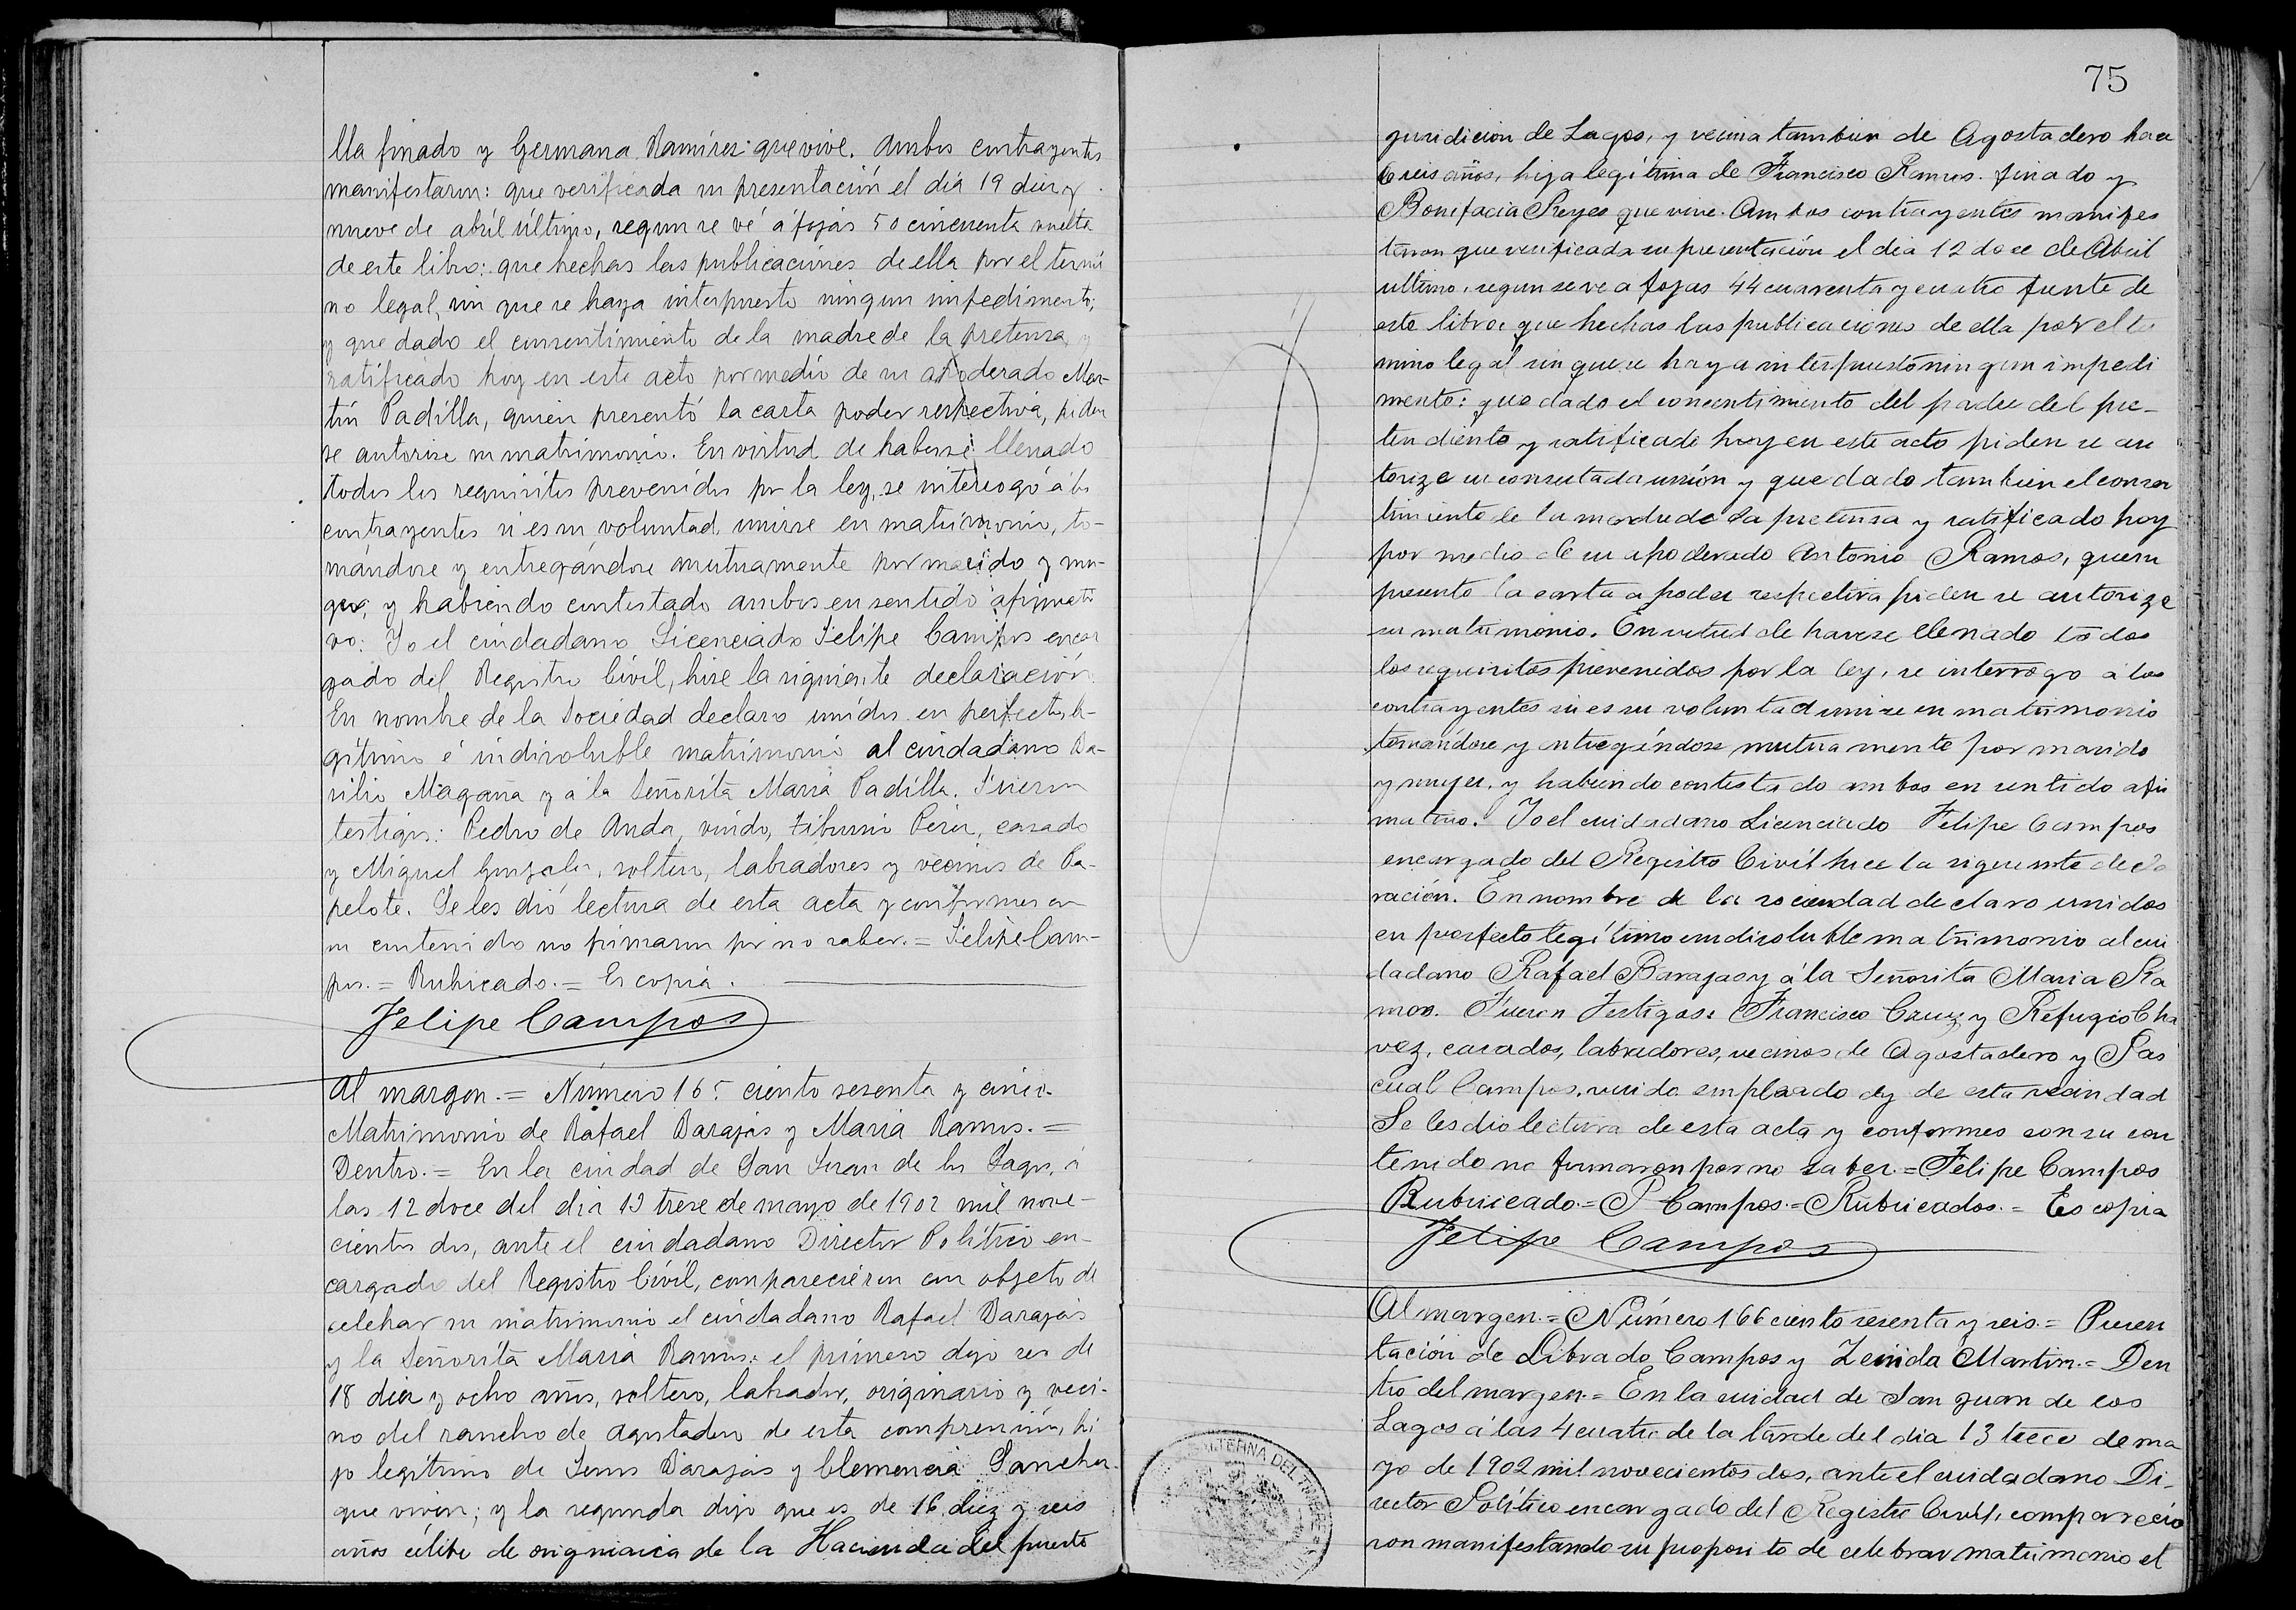 lla finado y Germana Ramírez que vive. Ambos contrayentes
manifestaron: que verificada su presentación el día 19 diez y
nueve de abril último, segun se vé á fojas 50 cincuenta vuelta
de este libro: que hechas las publicaciones de ella por el térmi
no legal, sin que se haya interpuesto ningun impedimento;
y que dado el consentimiento de la madre de la pretensa y
ratificado hoy en este acto por medio de su apoderado Mar-
tín Padilla, quien presentó la carta poder respectiva, piden
se autorise su matrimonio. En virtud de haberse llenado
todos los requisitos prevenidos por la ley, se interrogó á los
contrayentes si es su voluntad unirse en matrimonio, to-
mándose y entregándose mutuamente por marido y mu-
ger, y habiendo contestado ambos en sentido afirmati
vo: Yo el ciudadano Licenciado Felipe Campos encar
gado del Registro Civil, hise la siguiente declaración
En nombre de la Sociedad declaro unidos en perfecto, le-
gítimo é indisoluble matrimonio al ciudadano Ba-
silio Magaña y á la Señorita María Padilla. Fueron
testigos: Pedro de Anda, viudo, Tiburcio Peres, casado
y Miguel Gonzales, soltero, labradores y vecinos de Pa-
pelote. Se les dió lectura de esta acta y conformes con
su contenido no firmaron por no saber. = Felipe Cam-
pos. = Rubricado. = Es copia.
Felipe Campos
Al margen. = Número 165 ciento sesenta y cinco.
Matrimonio de Rafael Barajas y María Ramos. =
Dentro. = En la ciudad de San Juan de los Lagos, á
las 12 doce del dia 13 trese de mayo de 1902 mil nove-
cientos dos, ante el ciudadano Director Político en-
cargado del Registro Civil, comparecieron con objeto de
celebrar su matrimonio el ciudadano Rafael Barajas
y la Señorita María Ramos: el primero dijo ser de
18 diez y ocho años, soltero, labrador, originario y veci-
no del rancho de Agostadero de esta comprensión, hi
jo legítimo de Jesus Barajas y Clemencia Sanches
que viven; y la segunda dijo que es de 16 diez y seis
años célibe de originaria de la Hacienda del puesto
75
juridicion de Lagos, y vecina tambien de Agostadero hace
6 seis años, hija legítima de Francisco Ramos finado y
Bonifacia Reyes que vive. Ambos contrayentes manifes
taron que verificada su presentación el dia 12 doce de Abril
ultimo, segun se ve a fojas 44 cuarenta y cuatro frente de
este libro: que hechas las publicaciones de ella por el te
mino legal sin que se haya interpuesto ningun impedi
mento: que dado el consentimiento del padre del pre-
tendiente y ratificado hoy en este acto piden se au
torize su consultada unión y que dado tambien el consen
timiento de la madre de la pretensa y ratificado hoy
por medio de su apoderado Antonio Ramos, quien
presento la carta a poder respectiva piden se autorize
su matrimonio. En virtud de haverse llenado todos
los requisitos prevenidos por la ley, se interrogo á los
contrayentes si es su voluntad unirse en matrimonio
tomándose y entregándose mutuamente por marido
y mujer, y habiendo contestado ambos en sentido afir
mativo. Yo el ciudadano Licenciado Felipe Campos
encargado del Registro Civil hice la siguiente decla
ración. En nombre de la sociedad declaro unidos
en perfecto legítimo e indisoluble matrimonio al ciu
dadano Rafael Barajas y á la Señorita Maria Ra
mos. Fueron Testigos: Francisco Cruz y Refugio Cha
vez, casados, labradores, vecinos de Agostadero y Pas
cual Campos, viudo empleado y de esta vecindad
Se les dio lectura de esta acta y conformes con su con
tenido no firmaron por no saber. = Felipe Campos
Rubricado. = P Campos. = Rubricados. = Es copia
Felipe Campos
Al margen. = Número 166 ciento sesenta y seis. = Presen
tación de Librado Campos y Zenida Martin. = Den
tro del margen. = En la ciudad de San Juan de los
Lagos á las 4 cuatro de la tarde del dia 13 trece de ma
yo de 1902 mil novecientos dos, ante el ciudadano Di-
rector Político encargado del Registro Civil, comparecie
ron manifestando su proposito de celebrar matrimonio el
ALTERNA DEL TIMBRE